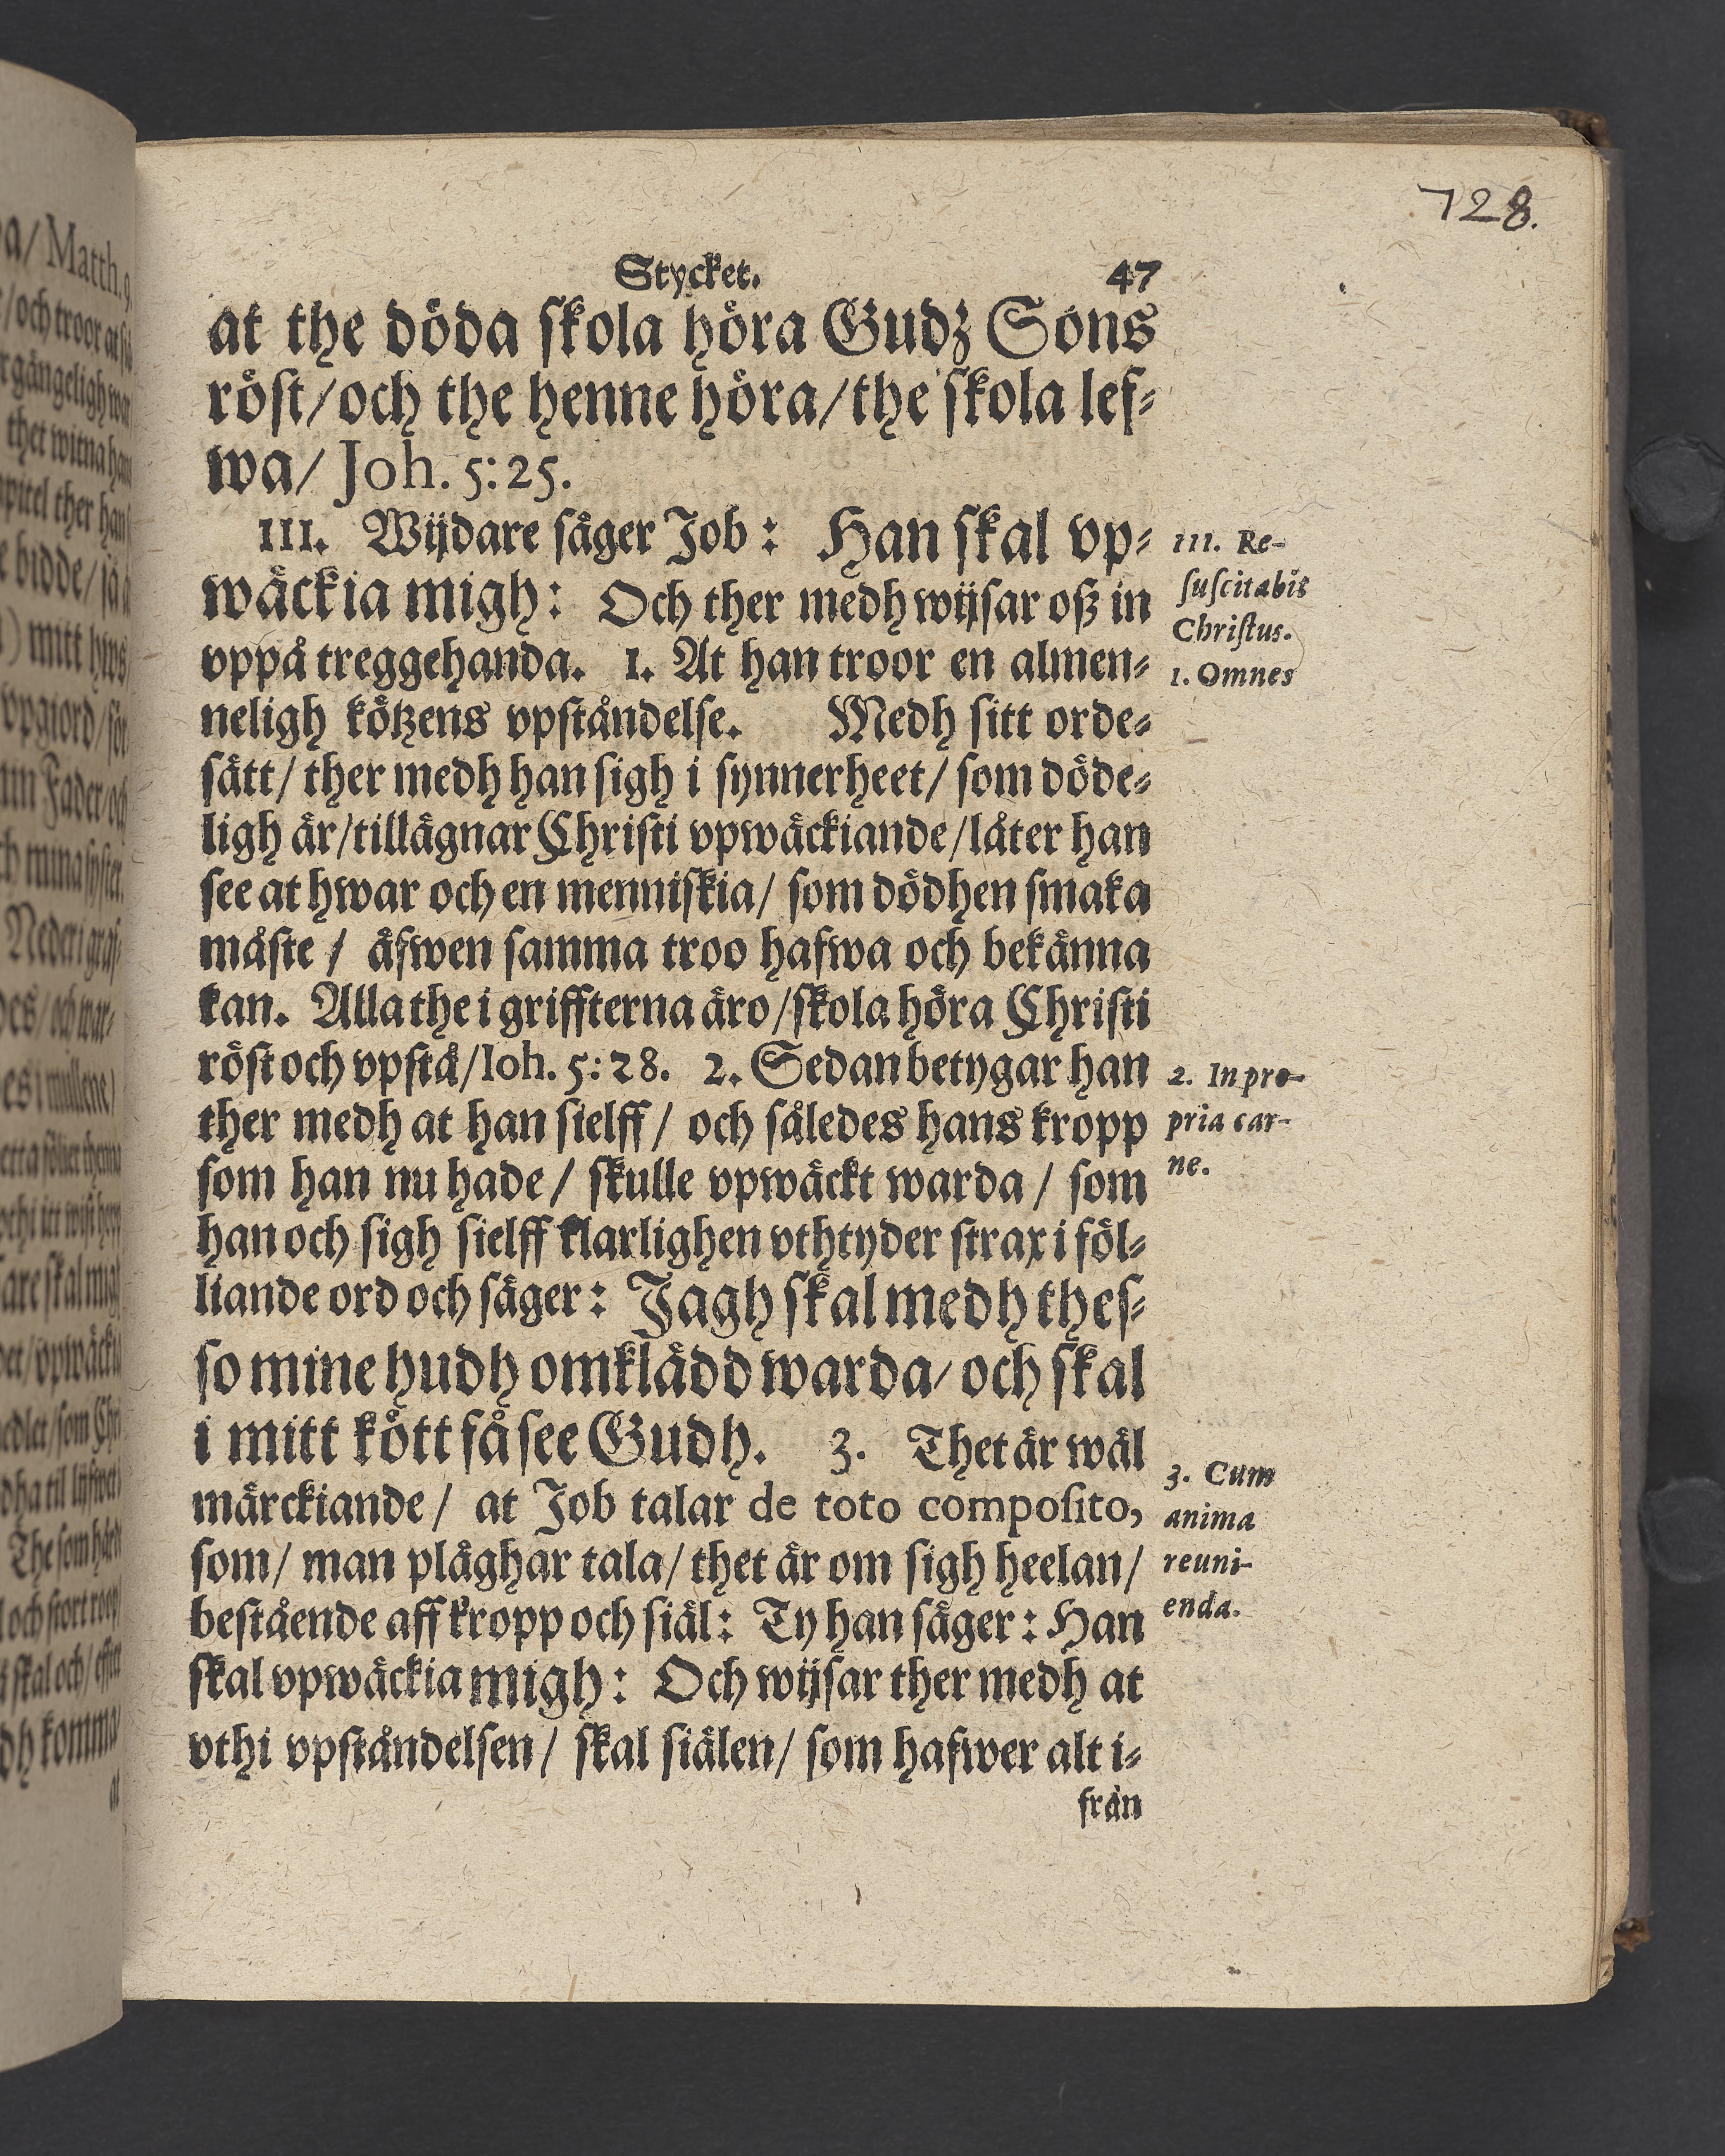 728.
Stycket. 47
at the döda skola höra Gudz Sons
röst/och the henne höra/the skola lef-
wa/ Joh. 5:25.
III. Wijdare säger Job: Han skal vp-
wäckia migh: Och ther medh wijsar oß in
vppå treggehanda. 1. At han troor en almen-
neligh kötzens vpståndelse. Medh sitt orde-
sätt/ ther medh han sigh i synnerheet/ som döde-
ligh är/tillägnar Christi vpwäckiande/låter han
see at hwar och en menniskia/ som dödhen smaka
måste / äfwen samma troo hafwa och bekänna
kan. Alla the i griffterna äro/skola höra Christi
röst och vpstå/Ioh. 5:28. 2. Sedan betygar han
ther medh at han sielff/ och således hans kropp
som han nu hade/ skulle vpwäckt warda/ som
han och sigh sielff klarlighen vthtyder strax i föl-
liande ord och säger: Jagh skal medh thes-
so mine hudh omklädd warda/ och skal
i mitt kött få see Gudh. 3. Thet är wäl
märckiande/ at Job talar de toto composito,
som/ man pläghar tala/ thet är om sigh heelan/
bestående aff kropp och siäl: Ty han säger: Han
skal vpwäckia migh: Och wijsar ther medh at
vthi vpståndelsen/ skal siälen/ som hafwer alt i-
från
III. Re-
suscitabit
Christus.
1. Omnes
2. In pro-
pria car-
ne.
3. Cum
anima
reuni-
enda.